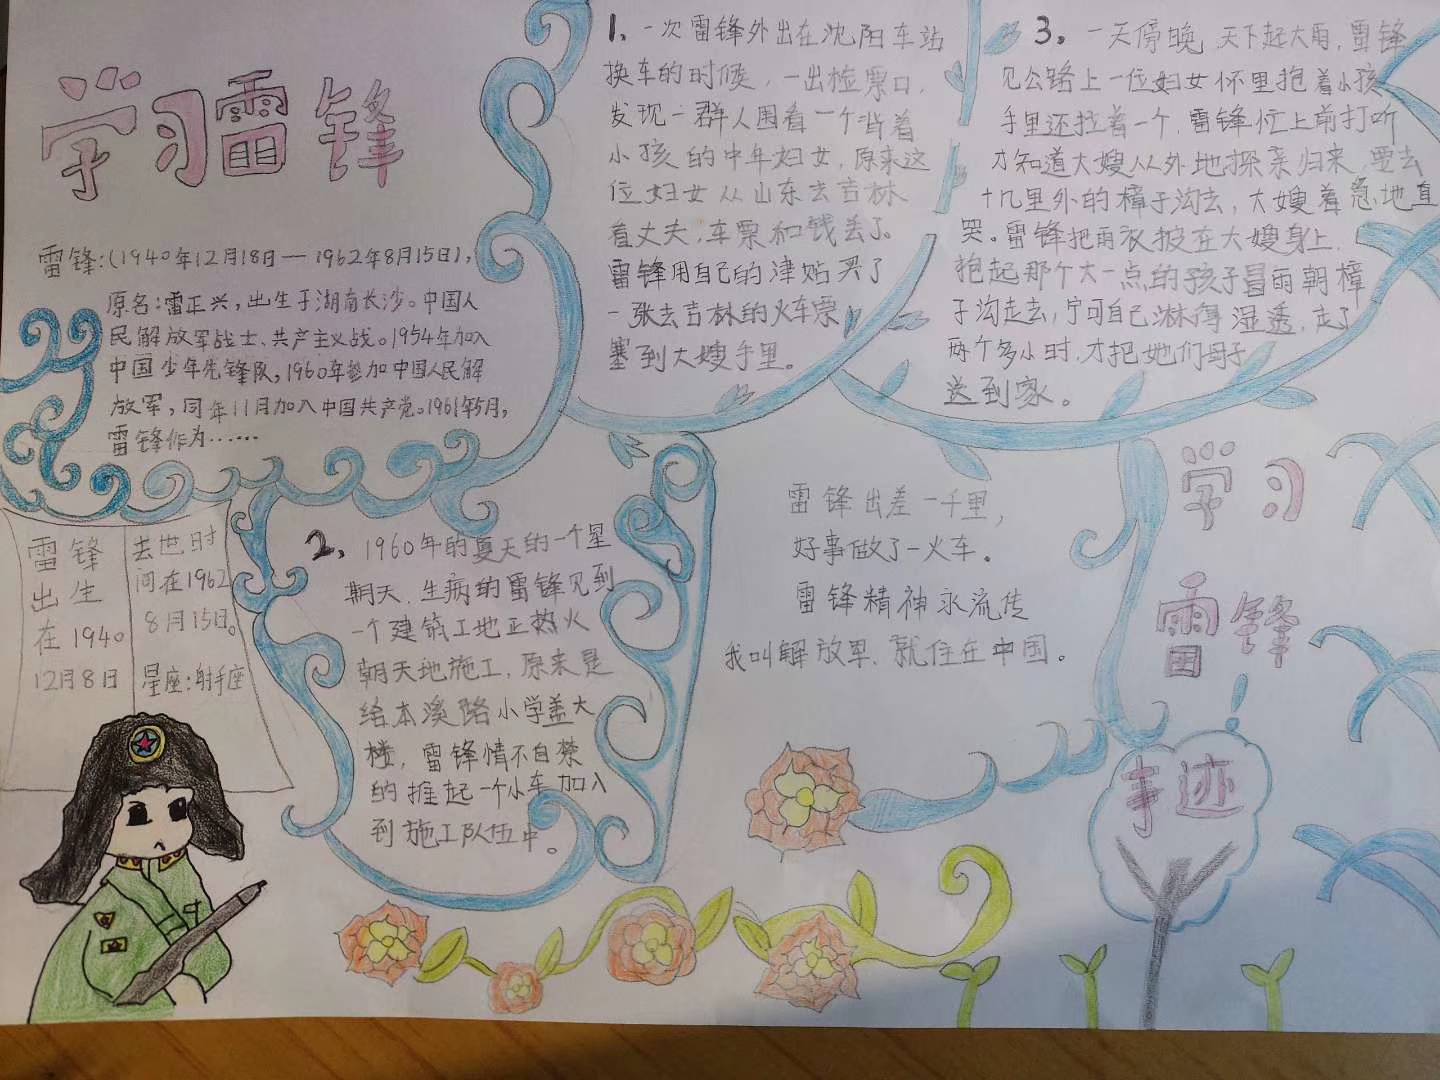 学习雷锋
雷锋:(1940年12月18日—1962年8月15日),
原名:雷正兴,出生于湖南长沙。中国人
民解放军战士、共产主义战。1954年加入
中国少年先锋队,1960年参加中国人民解
放军,同年11月加入中国共产党。1961年5月,
雷锋作为……
雷锋
出生
在1940
12月8日
去世时
间在1962
8月15日。
星座:射手座
1、一次雷锋外出在沈阳车站
换车的时候,一出检票口,
发现一群人围看一个背着
小孩的中年妇女,原来这
位妇女从山东去吉林
看丈夫,车票和钱丢了。
雷锋用自己的津贴买了
一张去吉林的火车票
塞到大嫂手里。
2、1960年的夏天的一个星
期天,生病的雷锋见到
一个建筑工地正热火
朝天地施工,原来是
给本溪路小学盖大
楼,雷锋情不自禁
的推起一个小车加入
到施工队伍中。
3、一天傍晚,天下起大雨,雷锋
见公路上一位妇女怀里抱着小孩
手里还拉着一个,雷锋忙上前打听
才知道大嫂从外地探亲归来,要去
十几里外的樟子沟去,大嫂着急地直
哭。雷锋把雨衣披在大嫂身上,
抱起那个大一点的孩子冒雨朝樟
子沟走去,宁可自己淋得湿透,走了
两个多小时,才把她们母子
送到家。
雷锋出差一千里,
好事做了一火车。
雷锋精神永流传
我叫解放军,就住在中国。
学习
雷锋
事迹